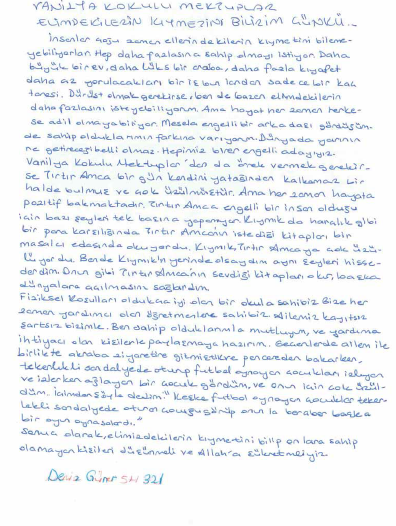 VANİLYA KOKULU MEKTUPLAR
ELİMDEKİLERİN KIYMETİNİ BİLİRİM ÇÜNKÜ...
İnsanlar çoğu zaman ellerindekilerin kıymetini bileme-
yebiliyorlar. Hep daha fazlasına sahip olmayı istiyor. Daha
büyük bir ev, daha lüks bir araba, daha fazla kıyafet
daha az yorulacakları bir iş bunlardan sadece bir kaç
tanesi. Dürüst olmak gerekirse, ben de bazen elimdekilerin
daha fazlasını isteyebiliyorum. Ama hayat her zaman herke-
se adil olmayabiliyor. Mesela engelli bir arkadaşı gördüğüm-
de sahip olduklarımın farkına varıyorum. Dünyada yarının
ne getireceği belli olmaz. Hepimiz birer engelli adayıyız.
Vanilya Kokulu Mektuplar'dan da örnek vermek gerekir-
se Tırtır Amca bir gün kendini yatağından kalkamaz bir
halde bulmuş ve çok üzülmüştür. Ama her zaman hayata
pozitif bakmaktadır. Tırtır Amca engelli bir insan olduğu
için bazı şeyleri tek başına yapamıyor. Kıymık da harçlık gibi
bir para karşılığında Tırtır Amca'nın istediği kitapları, bir
masalcı edasında okuyordu. Kıymık, Tırtır Amcaya çok üzü-
lüyordu. Bende Kıymık'ın yerinde olsaydım aynı şeyleri hisse-
derdim. Onun gibi Tırtır Amca'nın sevdiği kitapları okur, başka
dünyalara açılmasını sağlardım.
Fiziksel koşulları oldukça iyi olan bir okula sahibiz. Bize her
zaman yardımcı olan öğretmenlere sahibiz. Ailemiz kayıtsız
şartsız bizimle. Ben sahip olduklarımla mutluyum, ve yardıma
ihtiyacı olan kişilerle paylaşmaya hazırım. Geçenlerde ailem ile
birlikte akraba ziyaretine gitmiştik ve pencereden bakarken,
tekerlekli sandalyede oturup futbol oynayan çocukları izleyen
ve izlerken ağlayan bir çocuk gördüm, ve onun için çok üzül-
düm. İçimden şöyle dedim." Keşke futbol oynayan çocuklar teker-
lekli sandalyede oturan çocuğu görüp onunla beraber başka
bir oyun oynasalardı."
Sonuç olarak, elimizdekilerin kıymetini bilip onlara sahip
olamayan kişileri düşünmeli ve Allah'a şükretmeliyiz.
Deniz Güner 5/H 321